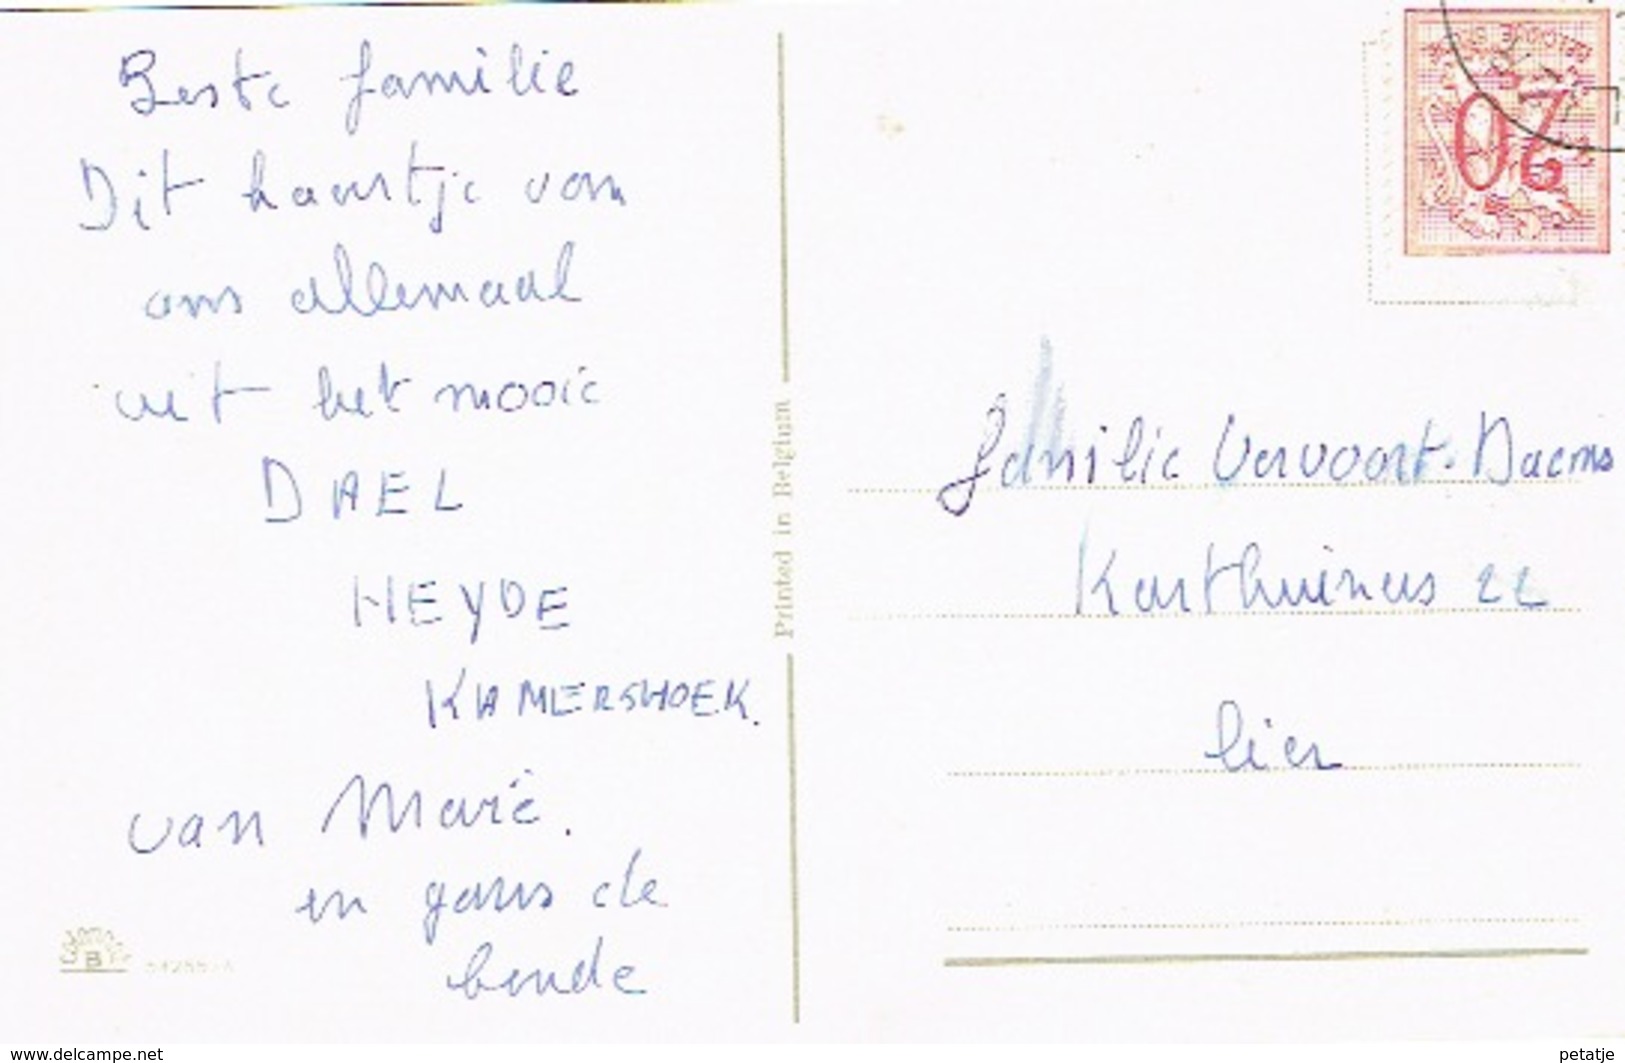 Beste familie
Dit kaartje van
ons allemaal
uit het mooie
DAEL
HEYDE
KAMERSHOEK.
van Marie.
en gans de
bende
Printed in Belgium
B
20
Familie Vervoort-Daems
Karthuizers 22
lier
www.delcampe.net
petatje